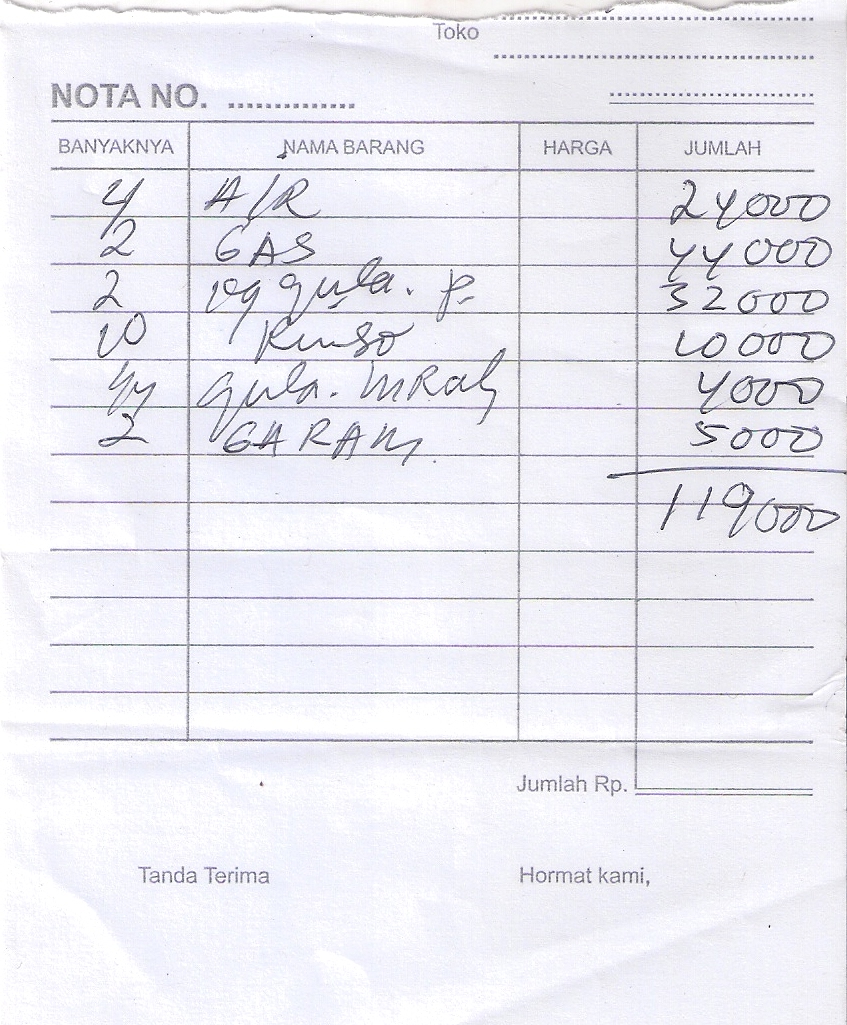 Toko
NOTA NO. ..............
BANYAKNYA NAMA BARANG HARGA JUMLAH
4 A/R 24000
2 GAS 44000
2 kg gula. P. 32000
10 Rinso 10000
1/4 gula. mRah 4000
2 GARAM. 5000
119000
Jumlah Rp.
Tanda Terima Hormat kami,